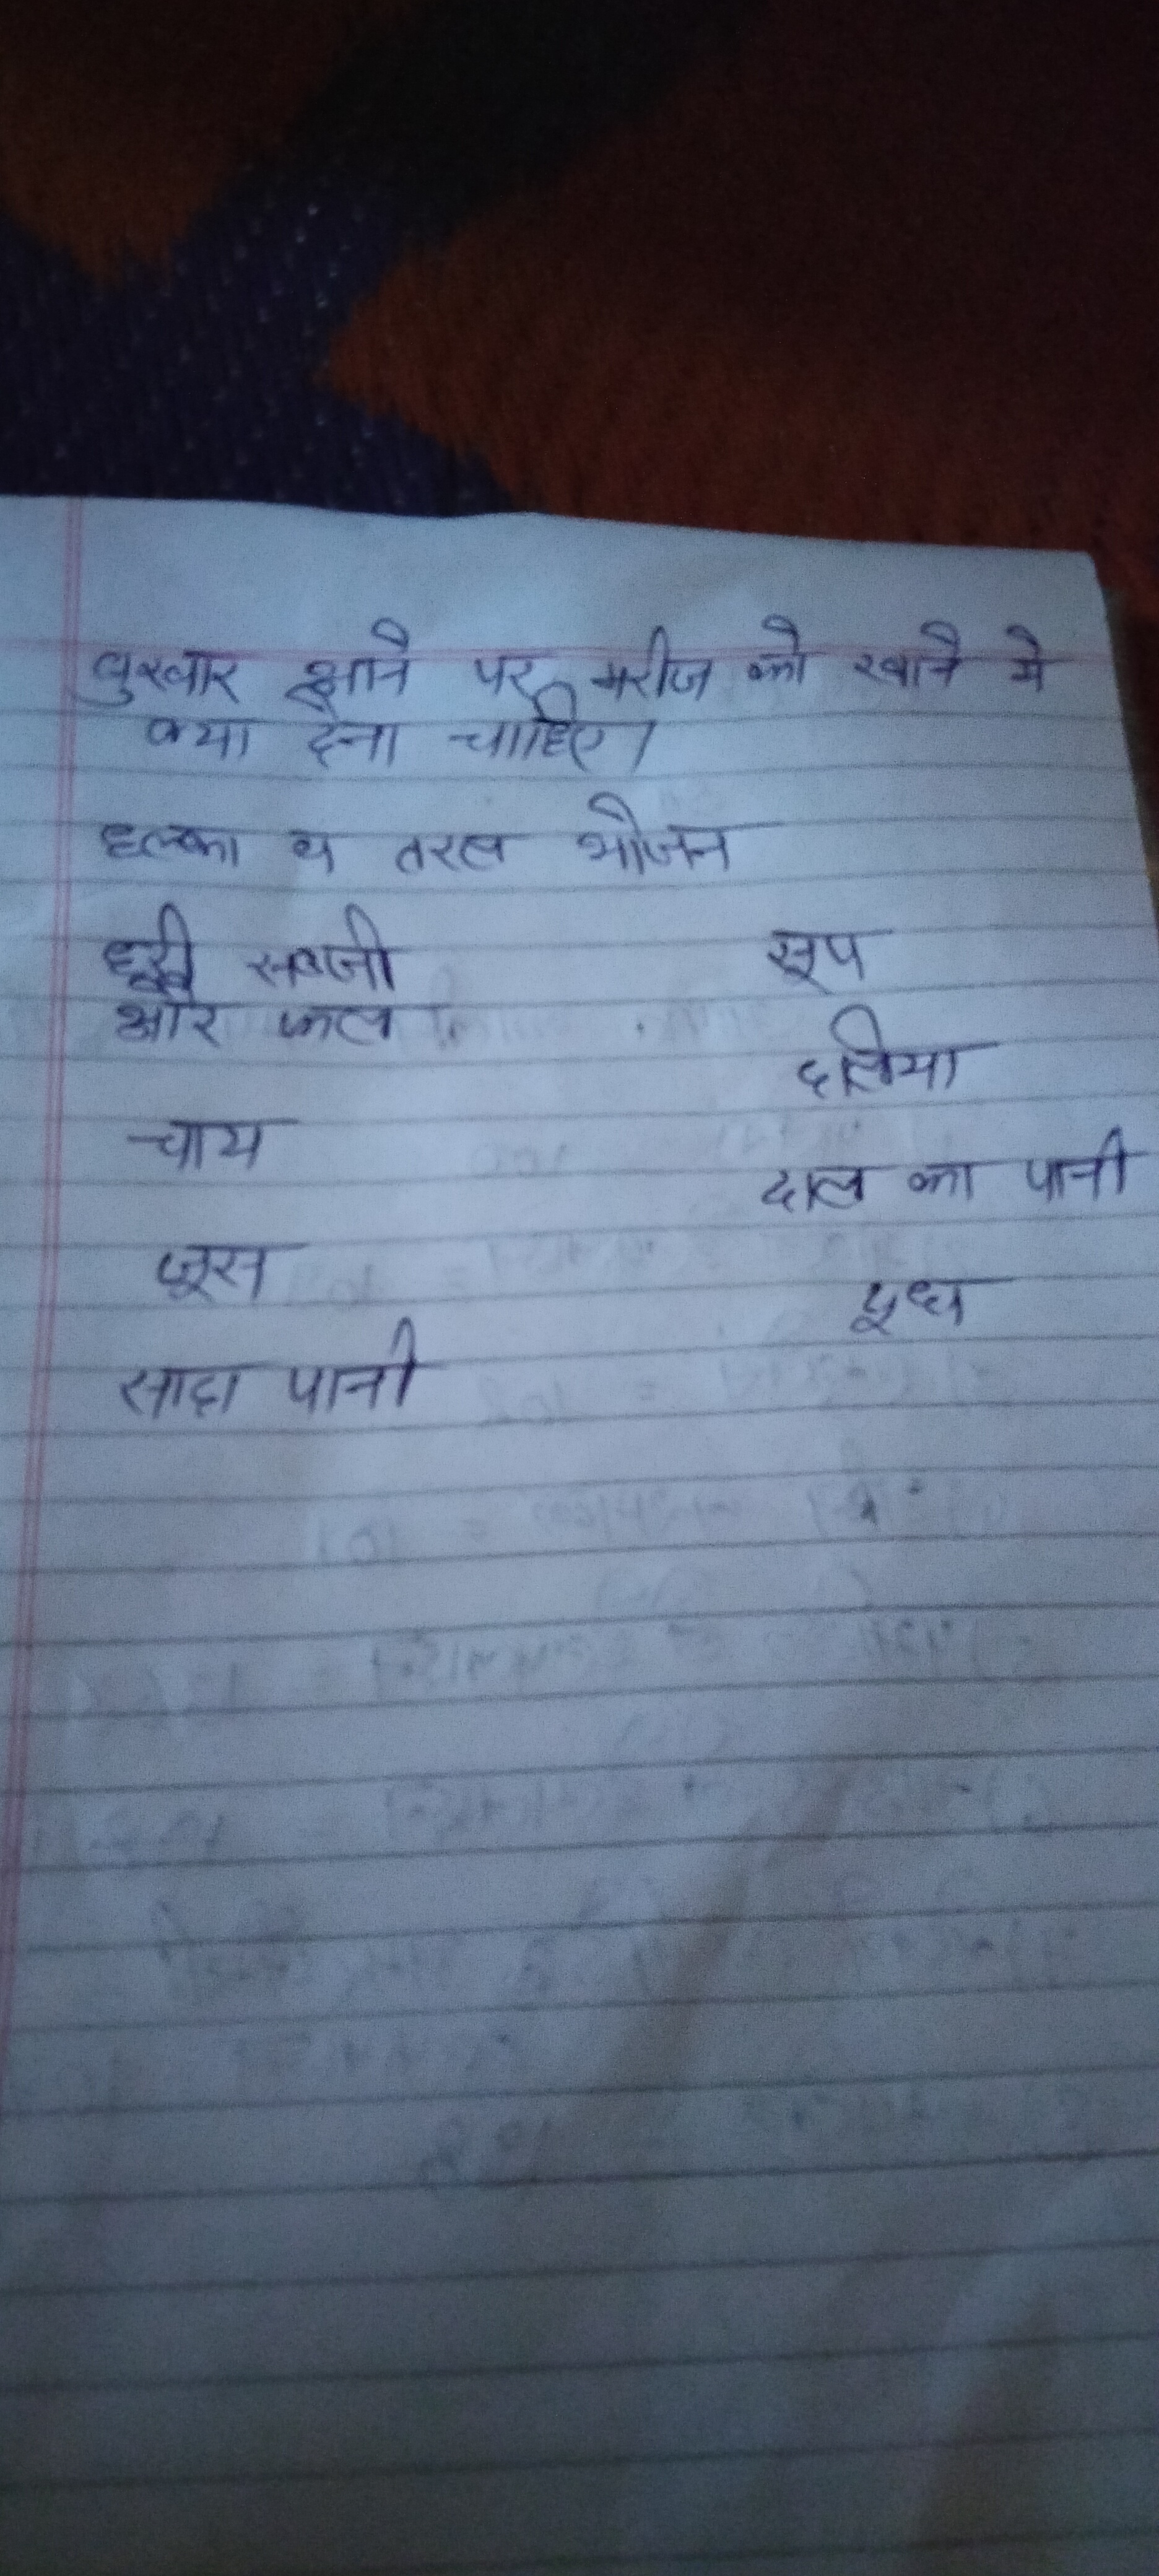 बुखार आने पर मरीज को खाने मे
क्या देना चाहिए।
हल्का व तरल भोजन
हरी सबजी
और फल
सूप
दलिया
चाय
दाल का पानी
जूस
दूध
सादा पानी